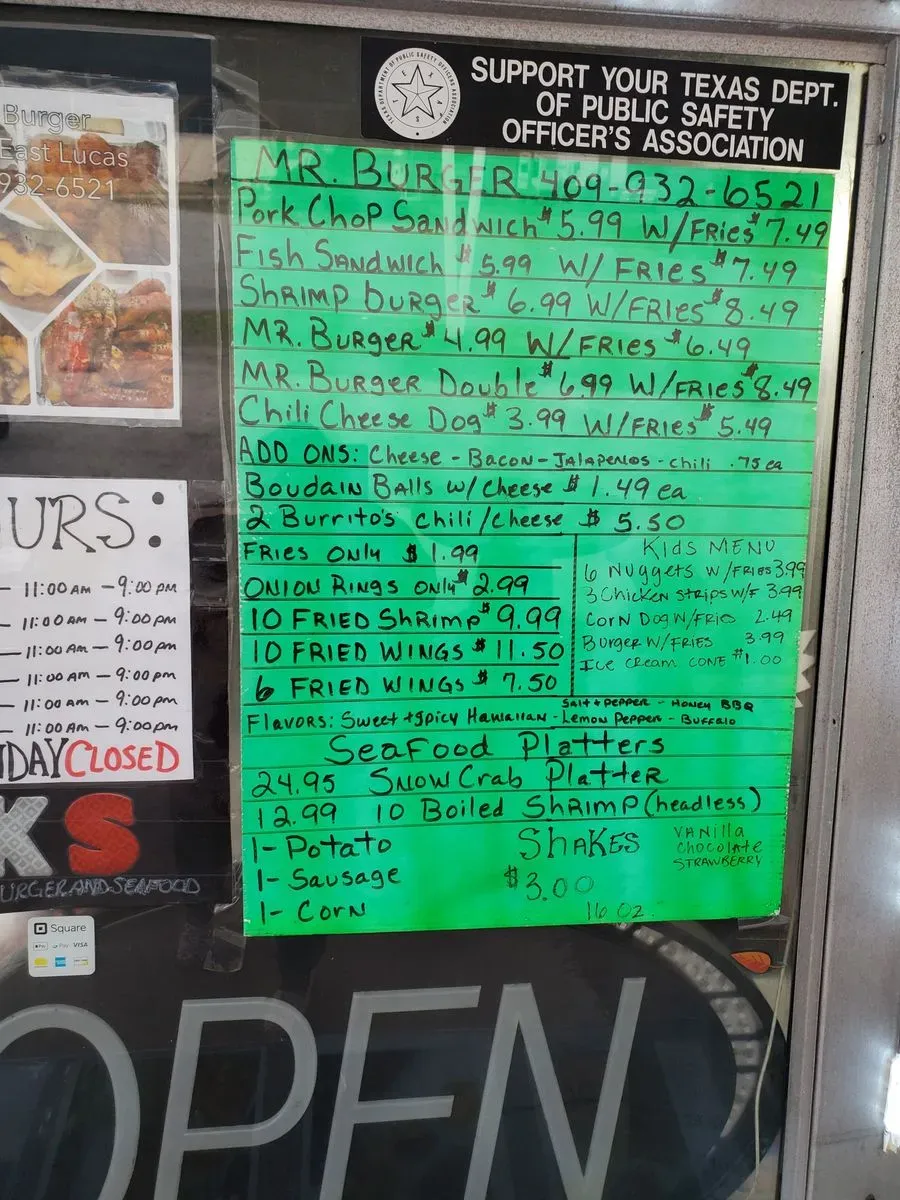 SUPPORT YOUR TEXAS DEPT.
OF PUBLIC SAFETY
OFFICER'S ASSOCIATION
Burger
East Lucas
932-6521
MR. BURGER 409-932-6521
Pork Chop Sandwich $5.99 W/Fries $7.49
Fish Sandwich $5.99 W/ FRIES $7.49
Shrimp burger $6.99 W/FRIES $8.49
MR. Burger $4.99 W/ FRIES $6.49
MR. Burger Double $6.99 W/FRIES $8.49
Chili Cheese Dog $3.99 W/FRIES $5.49
ADD ONS: Cheese - Bacon - Jalapenos - chili .75 ea
Boudain Balls w/ Cheese $1.49 ea
2 Burrito's chili/cheese $5.50
FRIES ONLY $1.99
ONION RINGS ONLY $2.99
10 FRIED Shrimp $9.99
10 FRIED WINGS $11.50
6 FRIED WINGS $7.50
Kids MENU
6 Nuggets W/FRIES 3.99
3 Chicken STRIPS W/F 3.99
Corn Dog W/Fries 2.49
Burger W/FRIES 3.99
Ice Cream CONE $1.00
Salt + Pepper - Honey BBQ
Flavors: Sweet + Spicy Hawaiian - Lemon Pepper - Buffalo
Seafood Platters
24.95 Snow Crab Platter
12.99 10 Boiled Shrimp (headless)
1- Potato
1- Sausage
1- Corn
SHAKES
$3.00
16 oz.
Vanilla
Chocolate
STRAWBERRY
URS:
- 11:00 AM - 9:00 PM
- 11:00 AM - 9:00 PM
- 11:00 AM - 9:00 PM
- 11:00 AM - 9:00 PM
- 11:00 AM - 9:00 PM
- 11:00 AM - 9:00 PM
DAY CLOSED
KS
URGERANDSEAFOOD
Square
Pay Pay VISA
OPEN